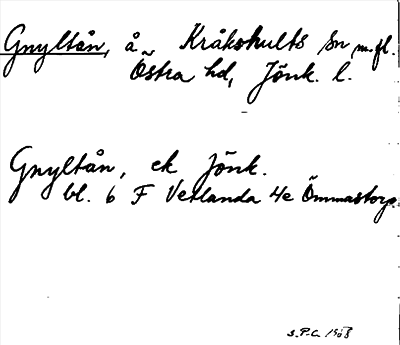 Gnyltån, å Kråkshults sn m.fl.
Östra hd, Jönk. l.
Gnyltån, ek Jönk.
bl. 6 F Vetlanda 4e Ömmastorp.
S.P.C. 1968